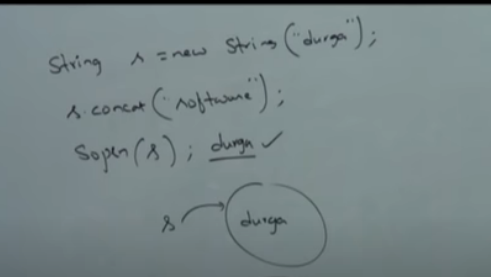 String s = new String("durga");
s.concat("software");
Sopln(s); durga ✓
s → durga